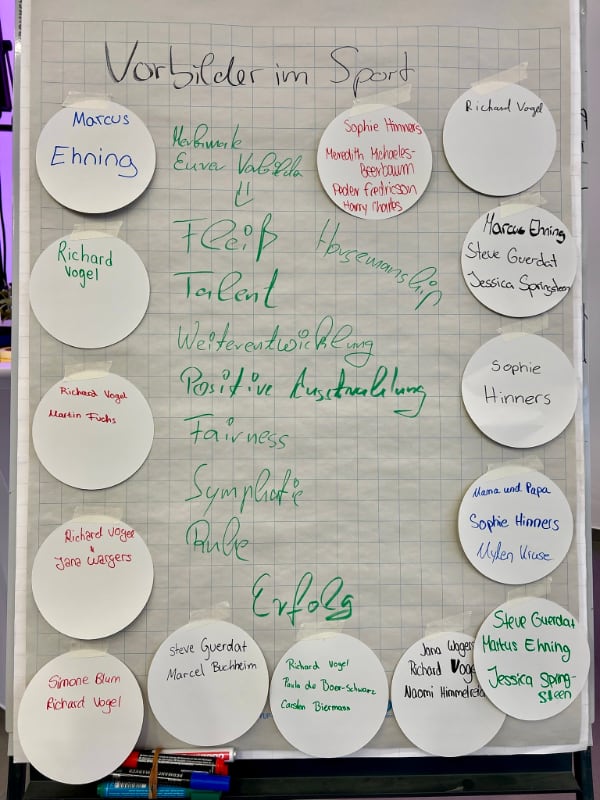 Vorbilder im Sport
Marcus
Ehning
Merkmale
Eurer Vorbilder
Sophie Hinners
Meredith Michaeles-
Beerbaum
Peder Fredricson
Harry Charles
Richard Vogel
Richard
Vogel
Fleiß
Horsemanship
Talent
Weiterentwicklung
Positive Ausstrahlung
Fairness
Symphatie
Ruhe
Erfolg
Marcus Ehning
Steve Guerdat
Jessica Springsteen
Richard Vogel
Martin Fuchs
Sophie
Hinners
Richard Vogel
&
Jana Wargers
Mama und Papa
Sophie Hinners
Mylen Kruse
Simone Blum
Richard Vogel
Steve Guerdat
Marcel Buchheim
Richard Vogel
Paula de Boer-Schwarz
Carsten Biermann
Jana Wagers
Richard Vogel
Naomi
Steve Guerdat
Markus Ehning
Jessica Spring-
steen